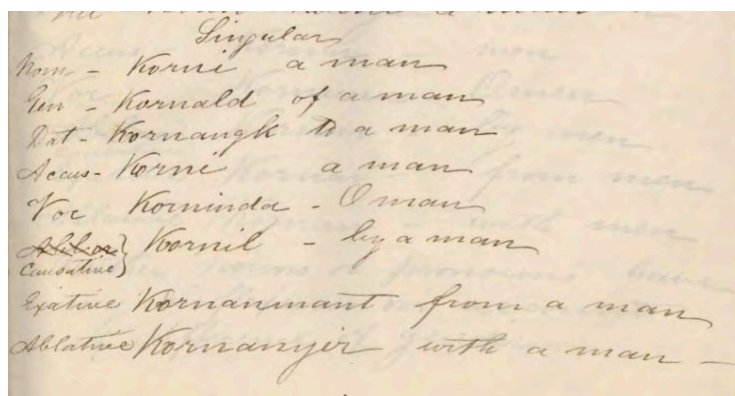 Singular
Nom - Korni a man
Gen - Kornald of a man
Dat - Kornangk to a man
Acaus - Korni a man
Voc Korninda - O man
Ablat or } Kornil - by a man
Causative }
Exative Kornanmant from a man
Ablative Kornanyir with a man -